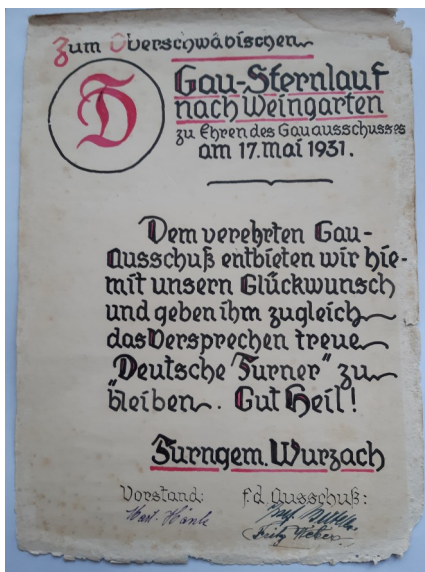 Zum Oberschwäbischen
D
Gau-Sternlauf
nach Weingarten
zu Ehren des Gauausschusses
am 17. Mai 1931.
Dem verehrten Gau-
Ausschuß entbieten wir hie-
mit unsern Glückwunsch
und geben ihm zugleich
das Versprechen treue
"Deutsche Turner" zu
bleiben. Gut Heil!
Turngem. Wurzach
Vorstand: f.d. Ausschuß:
Fritz Weber